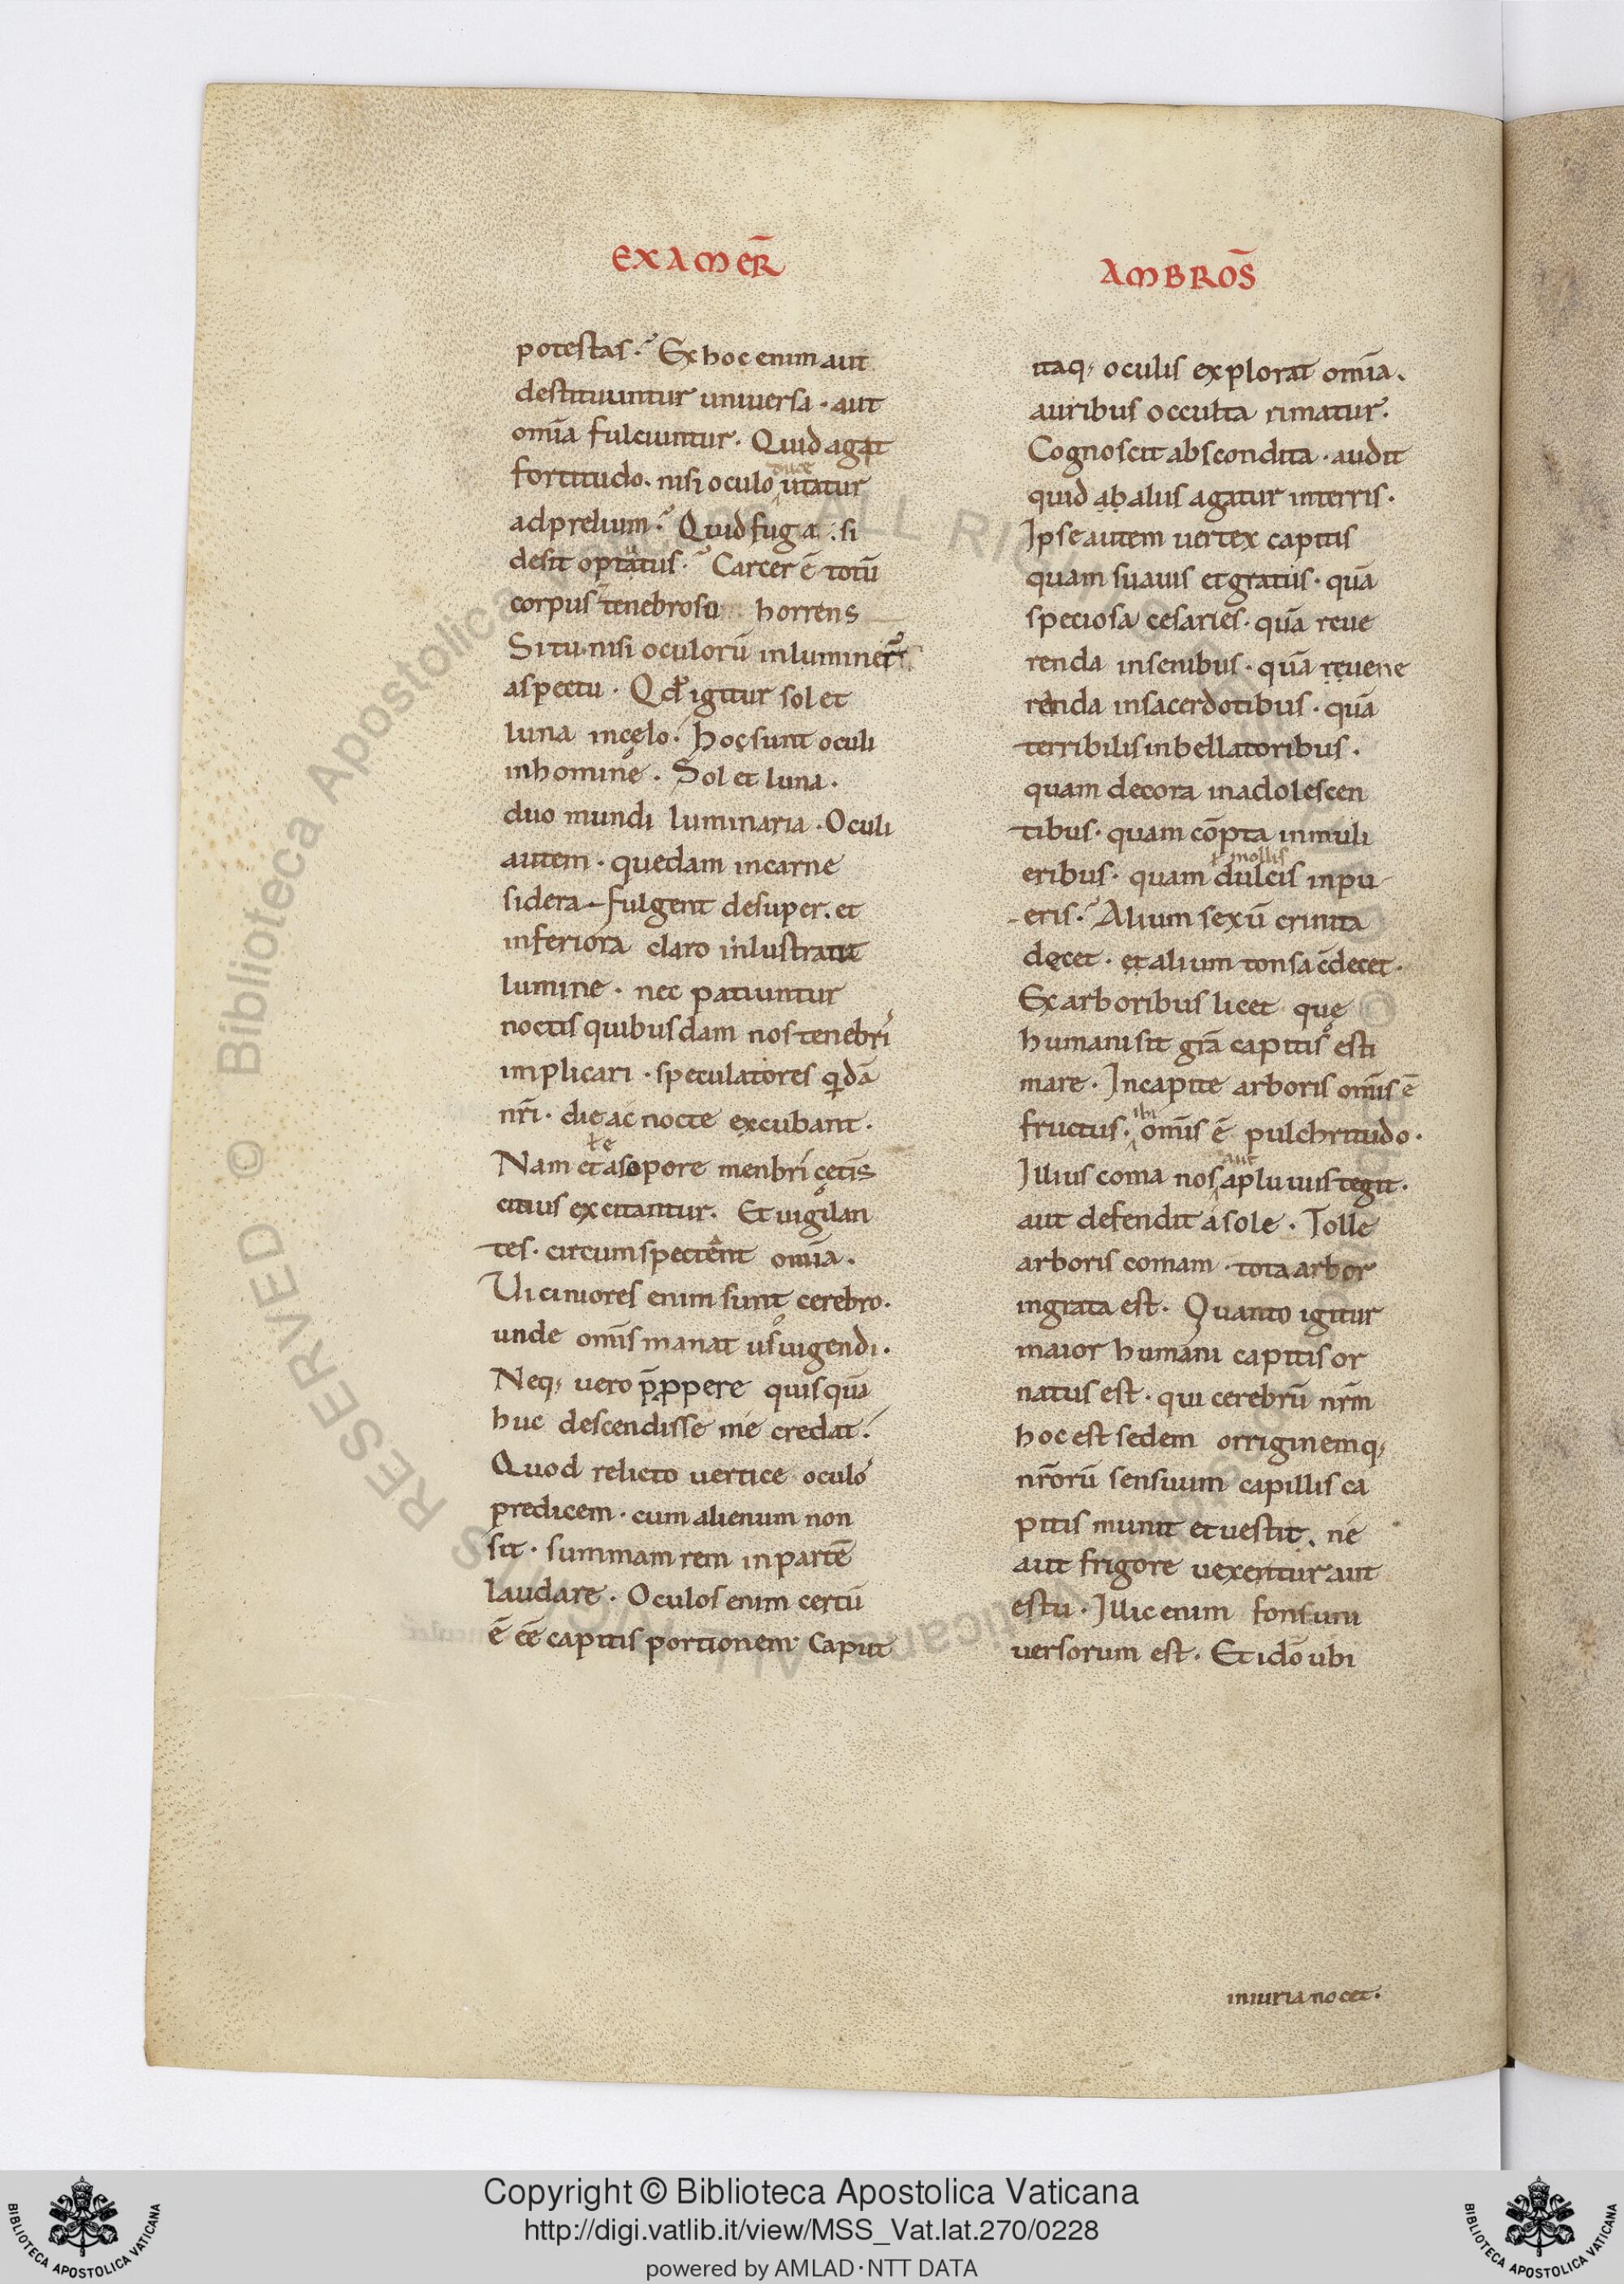 EXAMER̄
potestas. Ex hoc enim aut
destituuntur uniuersa · aut
om̄ia fulciuntur. Quid agat
fortitudo. nisi oculo duce utatur
ad prelium. Quid fuga . si
desit optatus. Carcer ē totū
corpus tenebroso horrens
Situ. nisi oculorū inluminet̄
aspectu · Qđ igitur sol et
luna in celo. hoc sunt oculi
in homine . Sol et luna .
duo mundi luminaria . Oculi
autem · quedam in carne
sidera fulgent desuper. et
inferiora claro inlustrant
lumine . nec patiuntur
noctis quibusdam nos tenebri
implicari · speculatores qidā
nr̄i · die ac nocte excubant .
Nam et a sopore menbri cetis
citius excitantur. Et uigilan
tes · circumspectent om̄ia .
Uiciniores enim sunt cerebro.
unde om̄is manat us uigendi.
Neq; uero p̄ppere quisquā
huc descendisse me credat.
Quod relicto uertice oculo
predicem · cum alienum non
sit · summam rem in partē
laudare . Oculos enim certū
ē eē capitis portionem. Caput
AMBROS̄
itaq; oculis explorat om̄ia.
auribus occulta rimatur.
Cognoscit abscondita · audit
quid ab aliis agatur in terris.
Ipse autem uertex capitis
quam suauis et gratus · quā
speciosa cesaries · quā reue
renda in senibus · quā reuene
renda in sacerdotibus · quā
terribilis in bellatoribus .
quam decora in adolescen
tibus · quam cōpta in muli
eribus · quam dulcis ł mollis in pu
eris. Alium sexū crinita
decet · et alium tonsa ēdecet .
Ex arboribus licet que
humani sit grā capitis esti
mare . In capite arboris om̄is ē
fructus . ibi om̄is ē pulchritudo .
Illius coma nos aut a pluuiis tegit .
aut defendit a sole . Tolle
arboris comam · tota arbor
ingrata est . Quanto igitur
maior humani capitis or
natus est · qui cerebrū nr̄m
hoc est sedem orriginemq;
nr̄orū sensuum capillis ca
pitis munit et uestit. ne
aut frigore uexentur aut
estu . Illic enim fons uni
uersorum est . Et idō ubi
iniuria nocet.
Copyright © Biblioteca Apostolica Vaticana
http://digi.vatlib.it/view/MSS_Vat.lat.270/0228
powered by AMLAD·NTT DATA